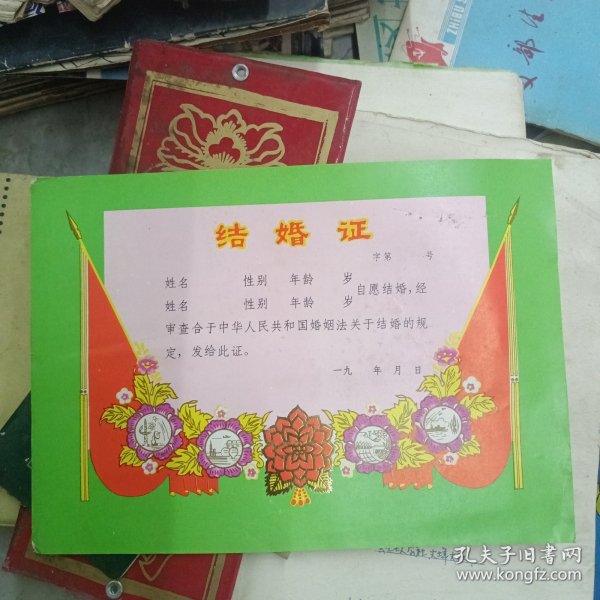 ZHIBU
支部生
结婚证
字第 号
姓名 性别 年龄 岁
自愿结婚，经
姓名 性别 年龄 岁
审查合于中华人民共和国婚姻法关于结婚的规
定，发给此证。
一九 年 月 日
孔夫子旧书网
www.kongfz.com